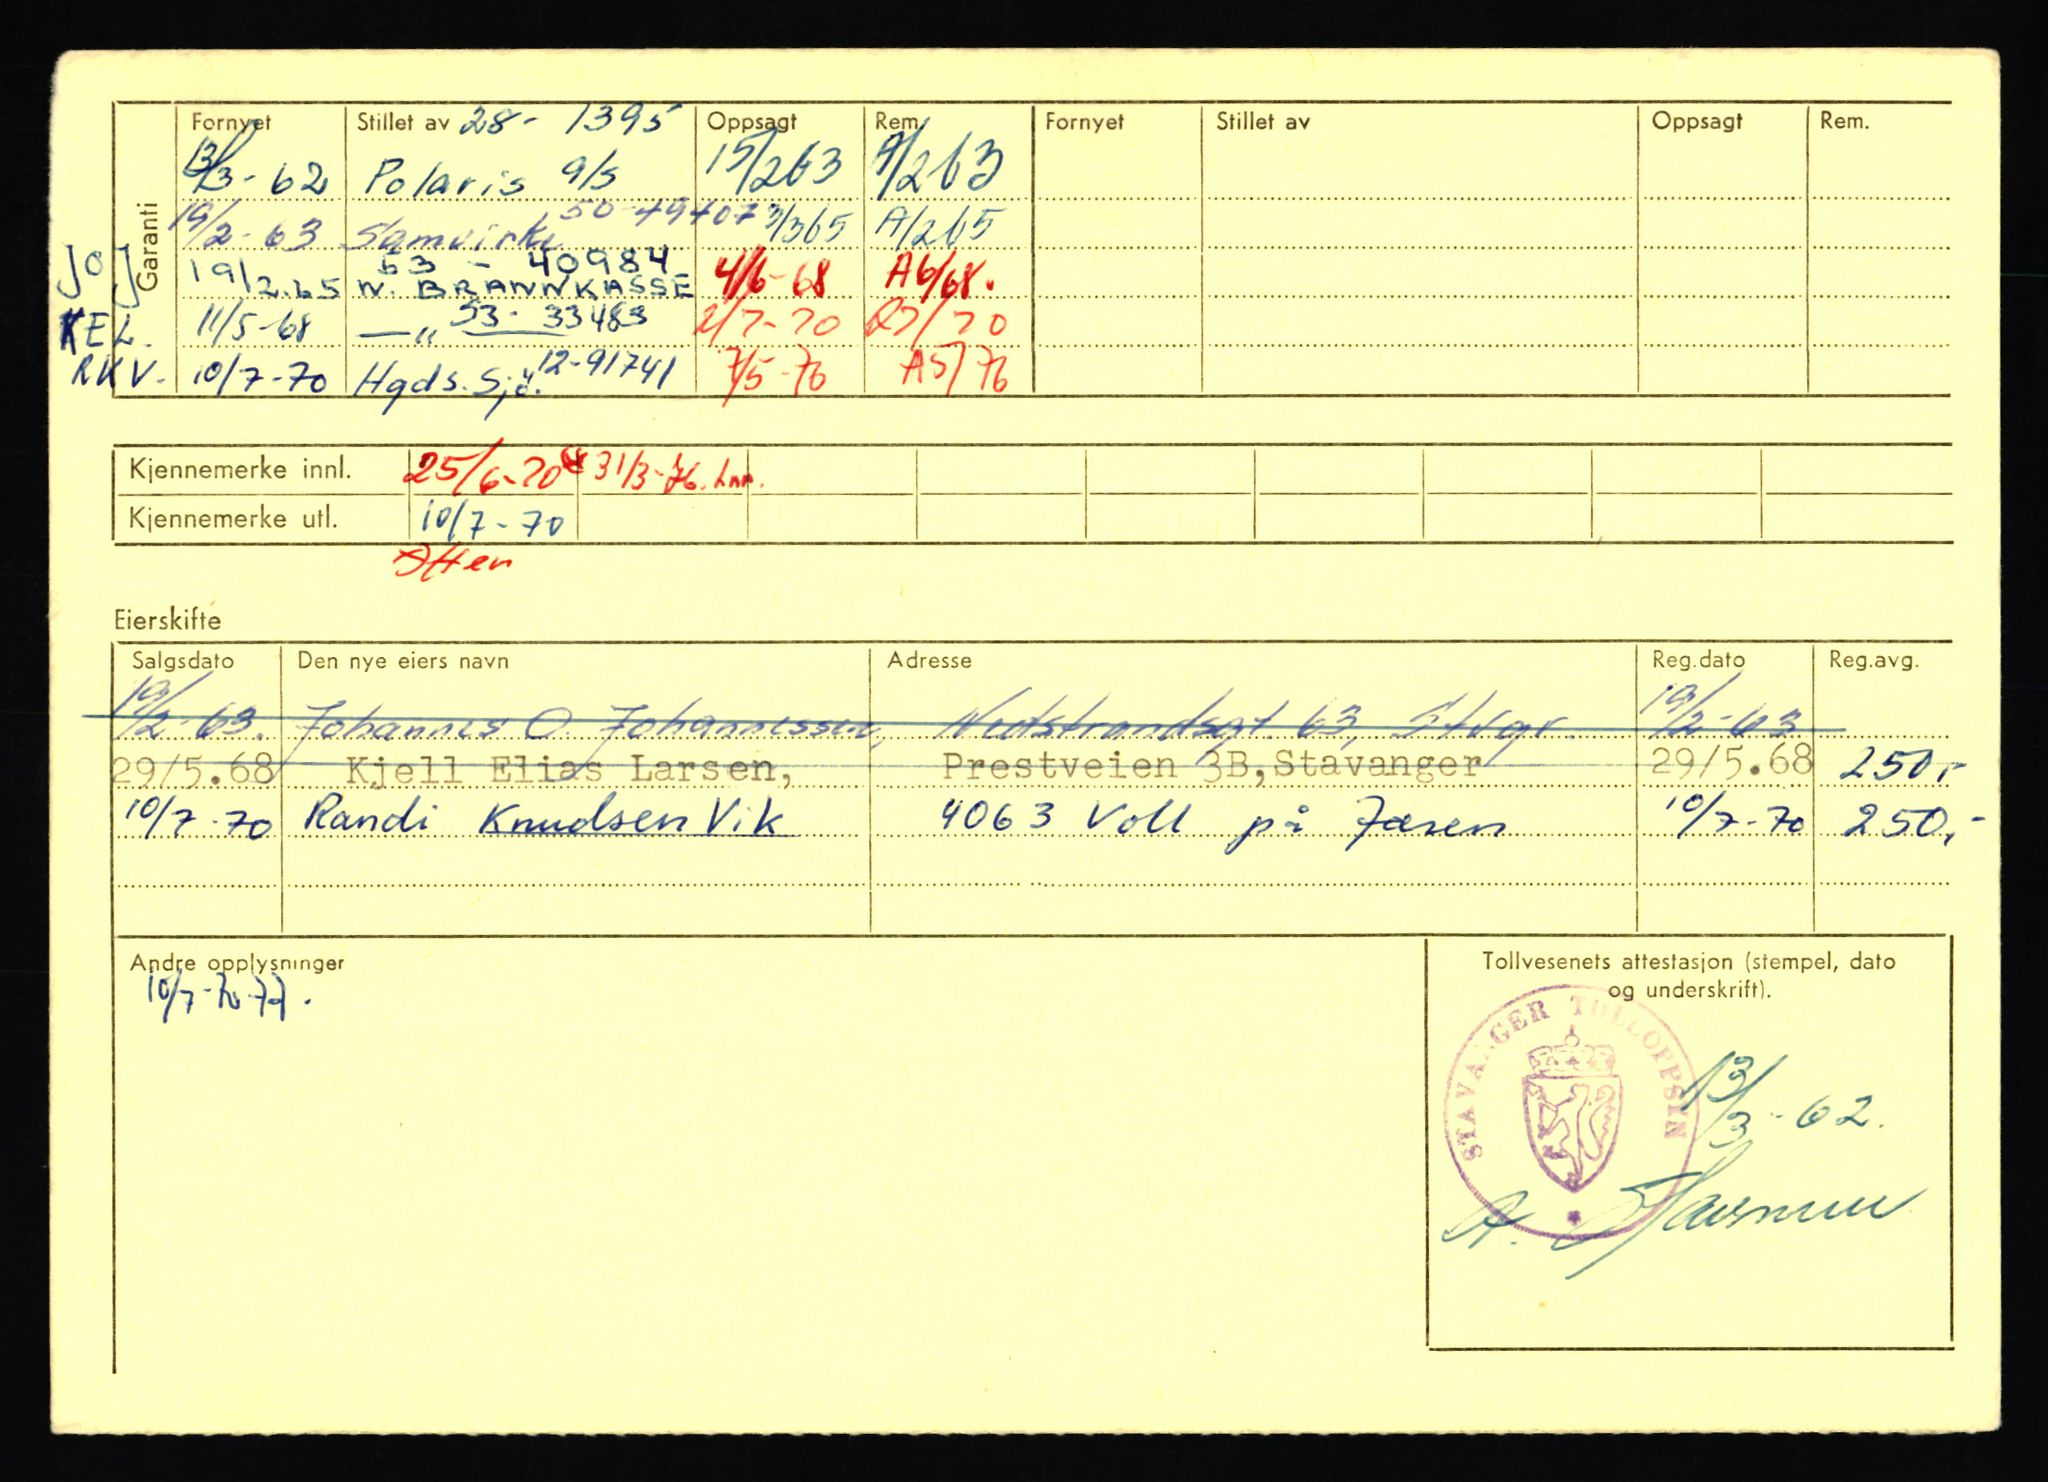 Garanti
Fornyet Stillet av 28- 1395 Oppsagt Rem. Fornyet Stillet av Oppsagt Rem.
13/3-62 Polaris 9/5 15/263 9/263
19/2-63 Samvirke 50-49407 3/365 A/265
JOJ 19/2.65 53 - 40984 N. BRANNKASSE 4/6-68 A6/68.
KEL. 11/5-68 —„— 53- 33483 2/7-70 /70
RKV. 10/7-70 Hgds. Sjö. 12-91741 7/5-76 A5/76
Kjennemerke innl. 25/6-70 31/3-76.
Kjennemerke utl. 10/7-70
Eierskifte
Salgsdato Den nye eiers navn Adresse Reg.dato Reg.avg.
19/2-63. Johannes O. Johannessen, Nedstrandsgt. 63, Stvgr. 19/2-63
29/5.68 Kjell Elias Larsen, Prestveien 3B, Stavanger 29/5.68 250,-
10/7-70 Randi Knudsen Vik 4063 Voll på Jæren 10/7-70 250,-
Andre opplysninger
10/7-70-
Tollvesenets attestasjon (stempel, dato
og underskrift).
STAVANGER TOLLOPPSYN
13/3-62.
A.